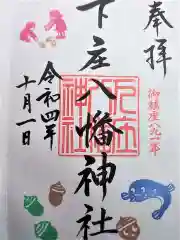 奉拝
御鎮座八九一年
下庄八幡神社
令和四年
十月一日